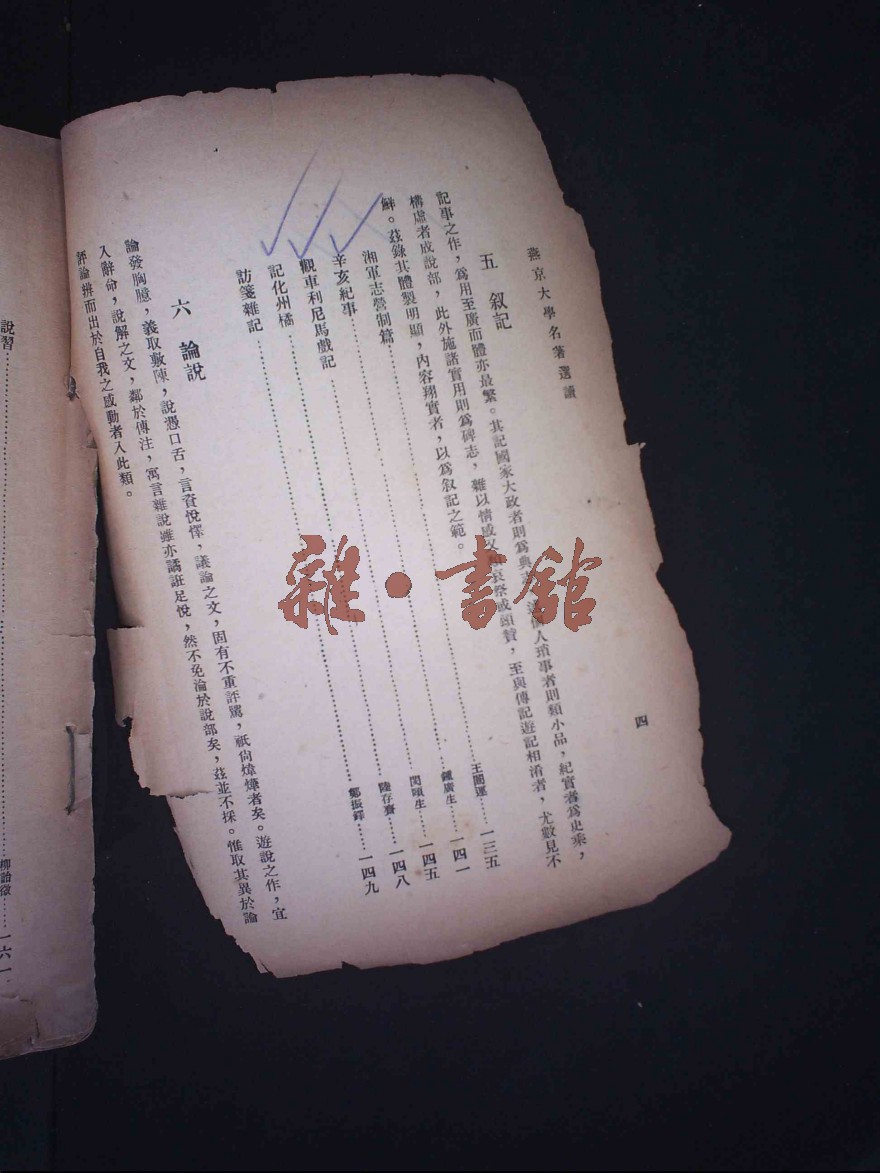 燕京大學名著選讀
四
五 敍記
記事之作，爲用至廣而體亦最繁。其記國家大政者則爲典
人瑣事者則類小品，紀實者爲史乘，
構虛者成說部，此外施諸實用則爲碑志，雜以情感
哀祭或頌贊，至與傳記遊記相淆者，尤數見不
鮮。茲錄其體製明顯，內容翔實者，以爲敍記之範。
湘軍志營制篇……王闓運……一三五
辛亥紀事……鍾廣生……一四一
觀車利尼馬戲記……閔頤生……一四五
記化州橘……陸存齋……一四八
訪箋雜記……鄭振鐸……一四九
六 論說
論發胸臆，義取敷陳，說憑口舌，言資悅懌，議論之文，固有不重詐騖，祇尙煒燁者矣。遊說之作，宜
入辭命，說解之文，鄰於傳注，寓言雜說雖亦譎誑足悅，然不免淪於說部矣，茲並不採。惟取其異於論
評論辨而出於自我之感動者入此類。
說習……柳詒徵……一六一
雜·書館